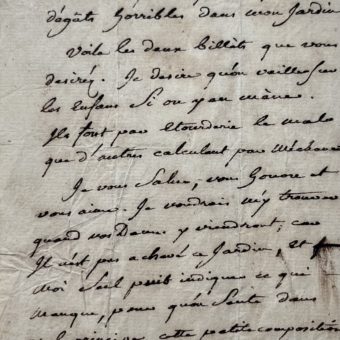 dégâts horribles dans mon Jardin
Voila les deux billets que vous
desirez. Je desire qu'on veille sur
les enfans Si on y en mène.
Ils font par étourderie le mal
que d'autres calculent par méchan
Je vous Salue, vous honore et
vous aime. Je voudrais m'y trouver
quand vos Dames y viendront, car
Il n'est pas achevé ce Jardin, et
moi Seul puis indiquer ce qui
manque, pour qu'on Sente dans
cette petite composition